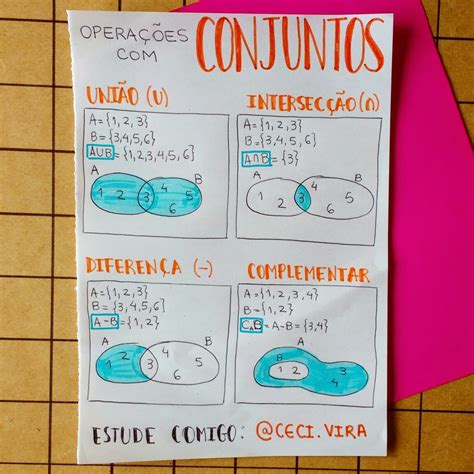 OPERAÇÕES
COM
CONJUNTOS
UNIÃO (U)
A={1,2,3}
B={3,4,5,6}
A∪B={1,2,3,4,5,6}
A
B
1 2 3 4 5 6
INTERSECÇÃO(∩)
A={1,2,3}
B={3,4,5,6}
A∩B={3}
A
B
1 2 3 4 5 6
DIFERENÇA (-)
A={1,2,3}
B={3,4,5,6}
A-B={1,2}
A
B
1 2 3 4 5 6
COMPLEMENTAR
A={1,2,3,4}
B={1,2}
CAB=A-B={3,4}
A
B
1 2
3
4
ESTUDE COMIGO: @CECI.VIRA